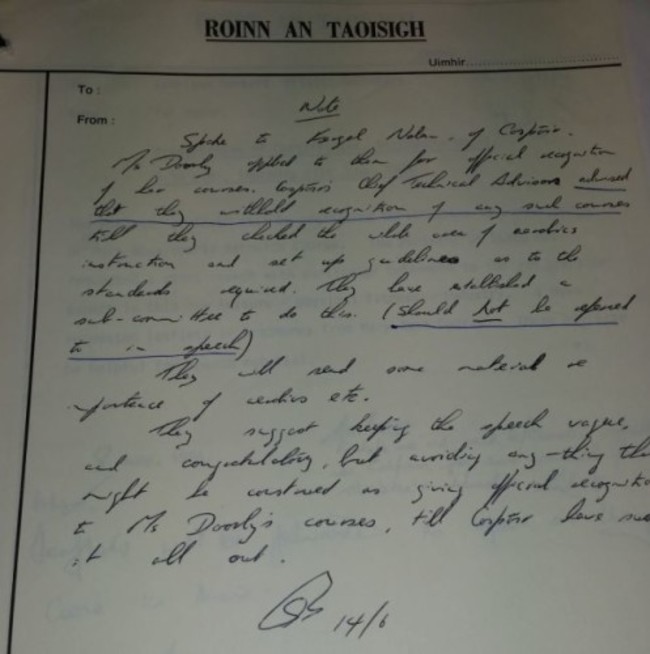 ROINN AN TAOISIGH
Uimhir
To :
From :
Note
Spoke to Fergal Nolan, of Cospóir.
Ms Doorly applied to them for official recognition
of her courses. Cospóir's Chief Technical Advisors advised
that they withhold recognition of any such courses
till they checked the whole area of aerobics
instruction and set up guidelines as to the
standards required. They have established a
sub-committee to do this. (Should Not be referred
to in speech)
They will send some material re
importance of aerobics etc.
They suggest keeping the speech vague,
and congratulatory, but avoiding any-thing tha
might be construed as giving official recognitio
to Ms Doorly's courses, till Cospóir have
it all out.
14/6